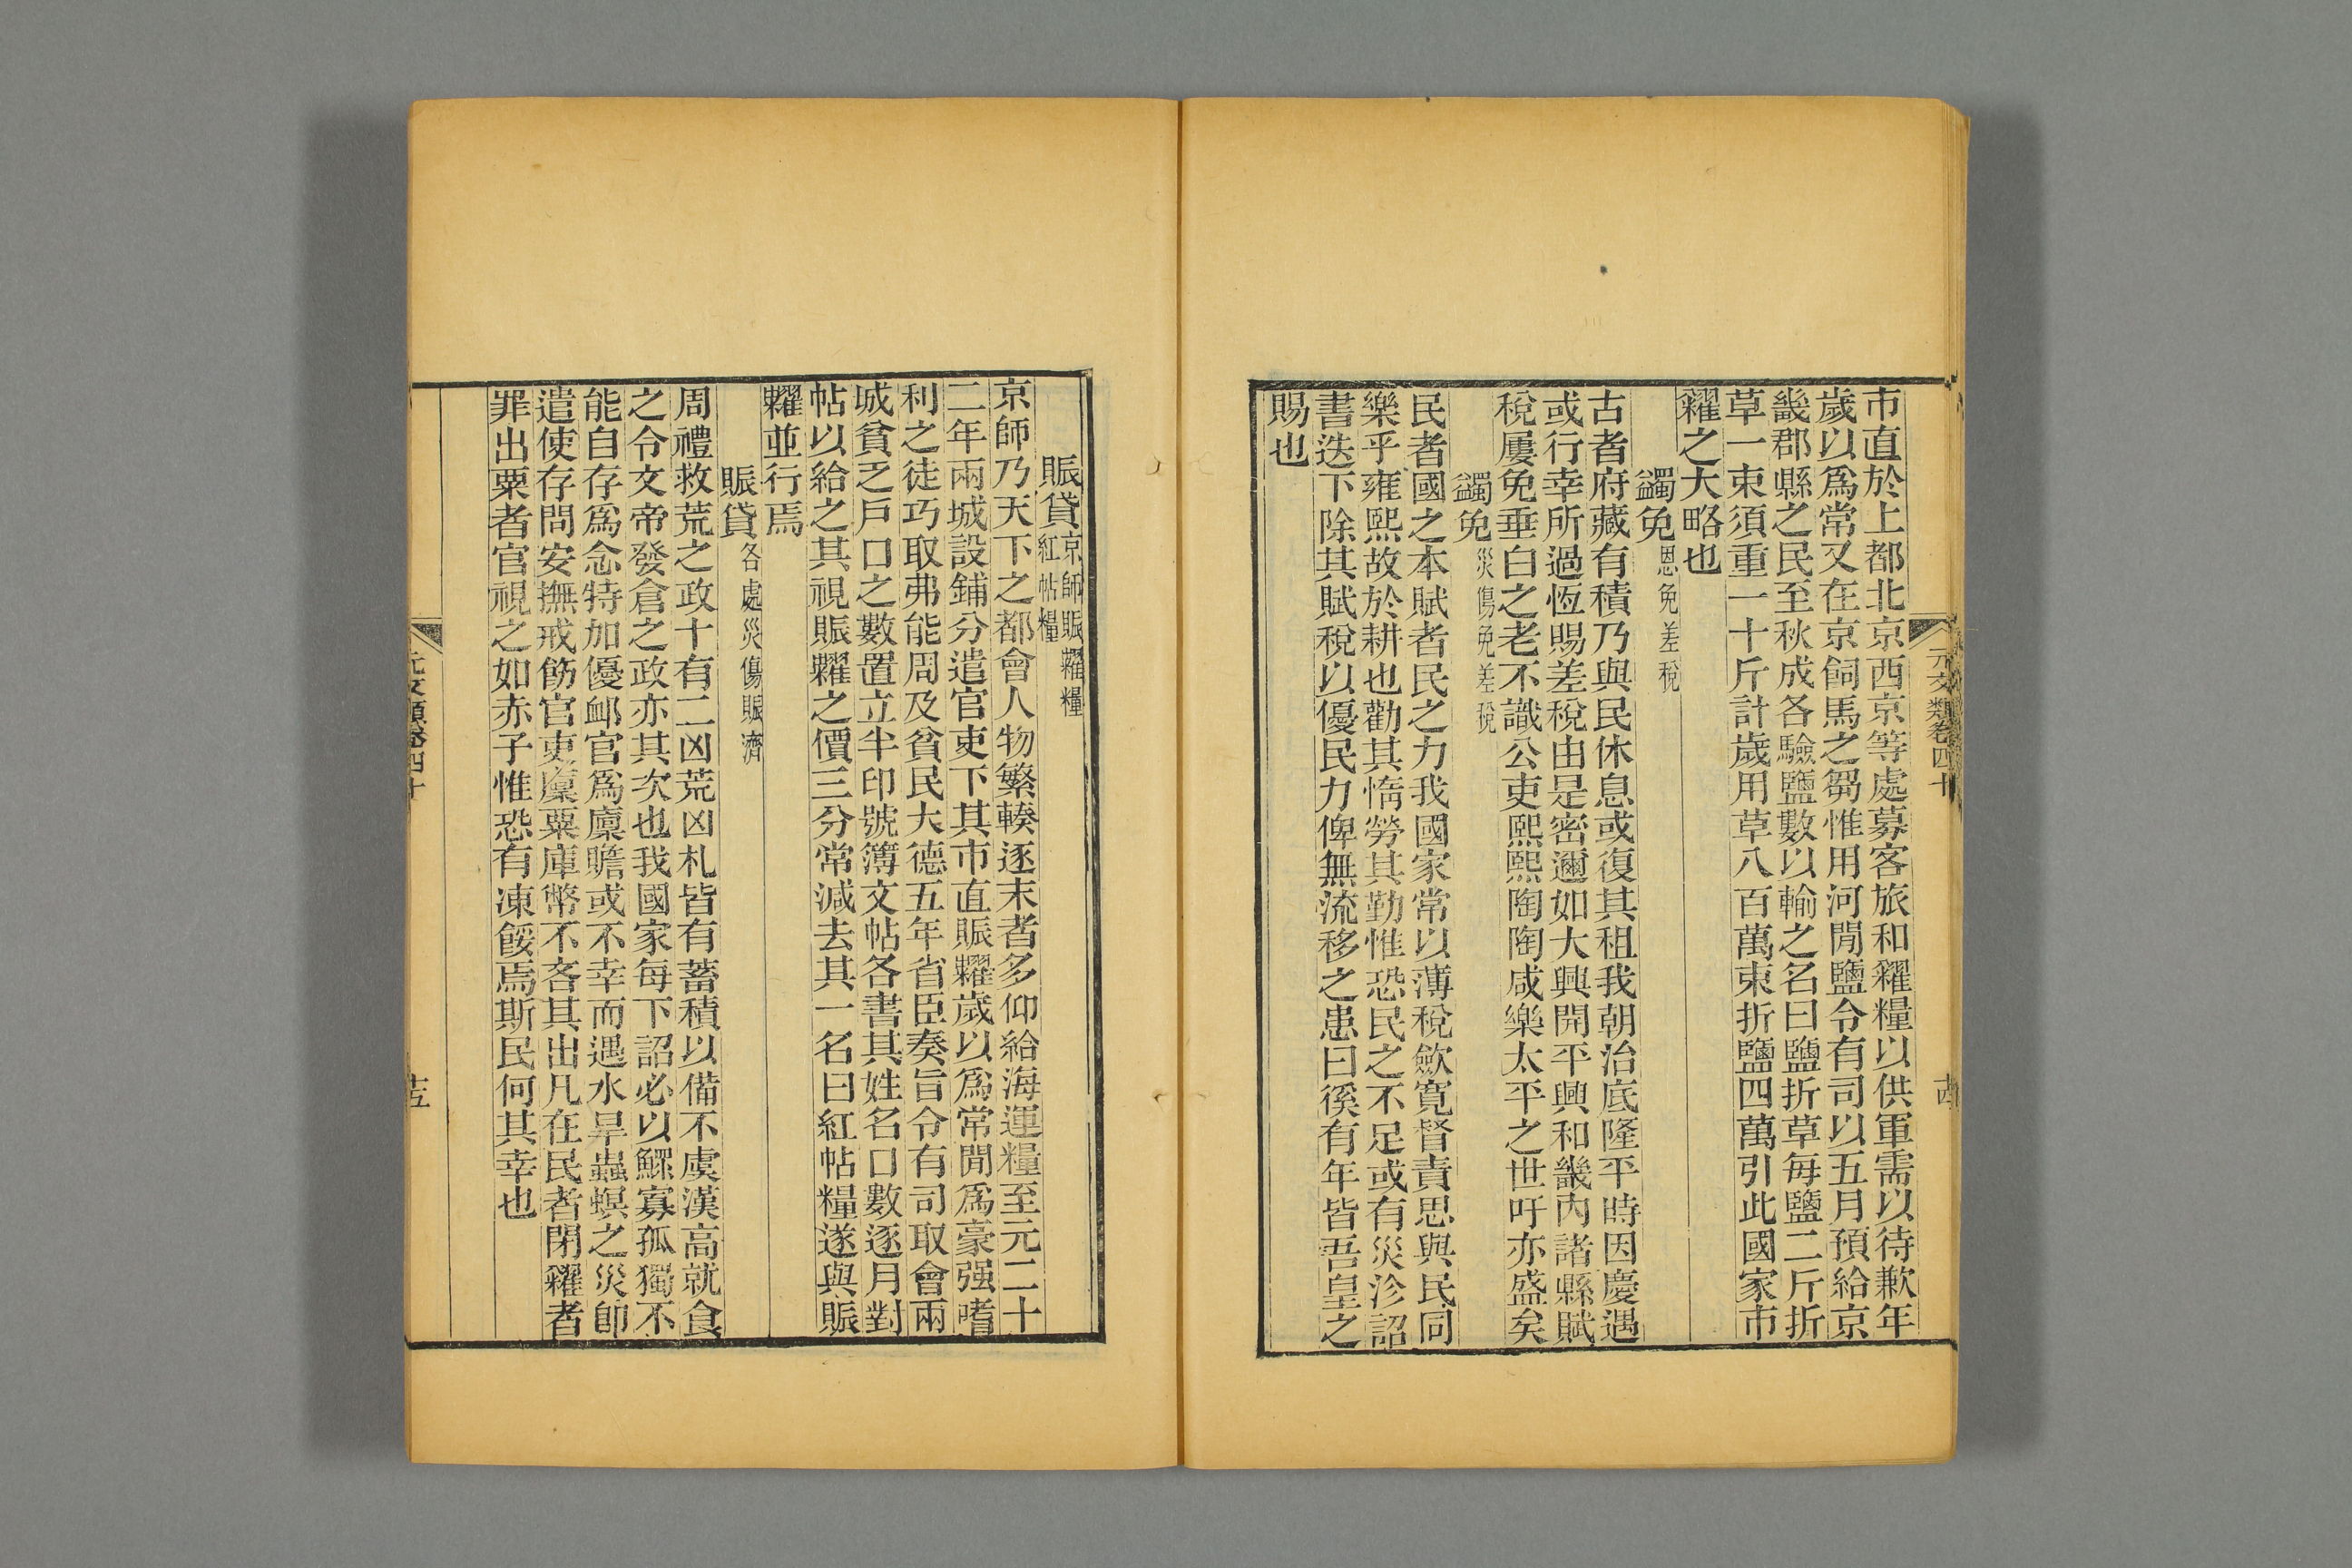 元文類卷四十
市直於上都北京西京等處募客旅和糴糧以供軍需以待歉年
歲以爲常又在京飼馬之芻惟用河閒鹽令有司以五月預給京
畿郡縣之民至秋成各驗鹽數以輸之名曰鹽折草每鹽二斤折
草一束須重一十斤計歲用草八百萬束折鹽四萬引此國家市
糴之大略也
蠲免恩免差稅
古者府藏有積乃與民休息或復其租我朝治底隆平時因慶遇
或行幸所過恆賜差稅由是密邇如大興開平興和畿內諸縣賦
稅屢免垂白之老不識公吏熙熙陶陶咸樂太平之世吁亦盛矣
蠲免災傷免差稅
民者國之本賦者民之力我國家常以薄稅歛寬督責思與民同
樂乎雍熙故於耕也勸其惰勞其勤惟恐民之不足或有災沴詔
書迭下除其賦稅以優民力俾無流移之患曰徯有年皆吾皇之
賜也
賑貸京師賑糶糧
紅帖糧
京師乃天下之都會人物繁輳逐末者多仰給海運糧至元二十
二年兩城設鋪分遣官吏下其市直賑糶歲以爲常閒爲豪强嗜
利之徒巧取弗能周及貧民大德五年省臣奏旨令有司取會兩
城貧乏戶口之數置立半印號簿文帖各書其姓名口數逐月對
帖以給之其視賑糶之價三分常減去其一名曰紅帖糧遂與賑
糶並行焉
賑貸各處災傷賑濟
周禮救荒之政十有二凶荒凶札皆有蓄積以備不虞漢高就食
之令文帝發倉之政亦其次也我國家每下詔必以鰥寡孤獨不
能自存爲念特加優卹官爲廩贍或不幸而遇水旱蟲螟之災卽
遣使存問安撫戒飭官吏廩粟庫幣不吝其出凡在民者閉糴者
罪出粟者官視之如赤子惟恐有凍餒焉斯民何其幸也
元文類卷四十
十五